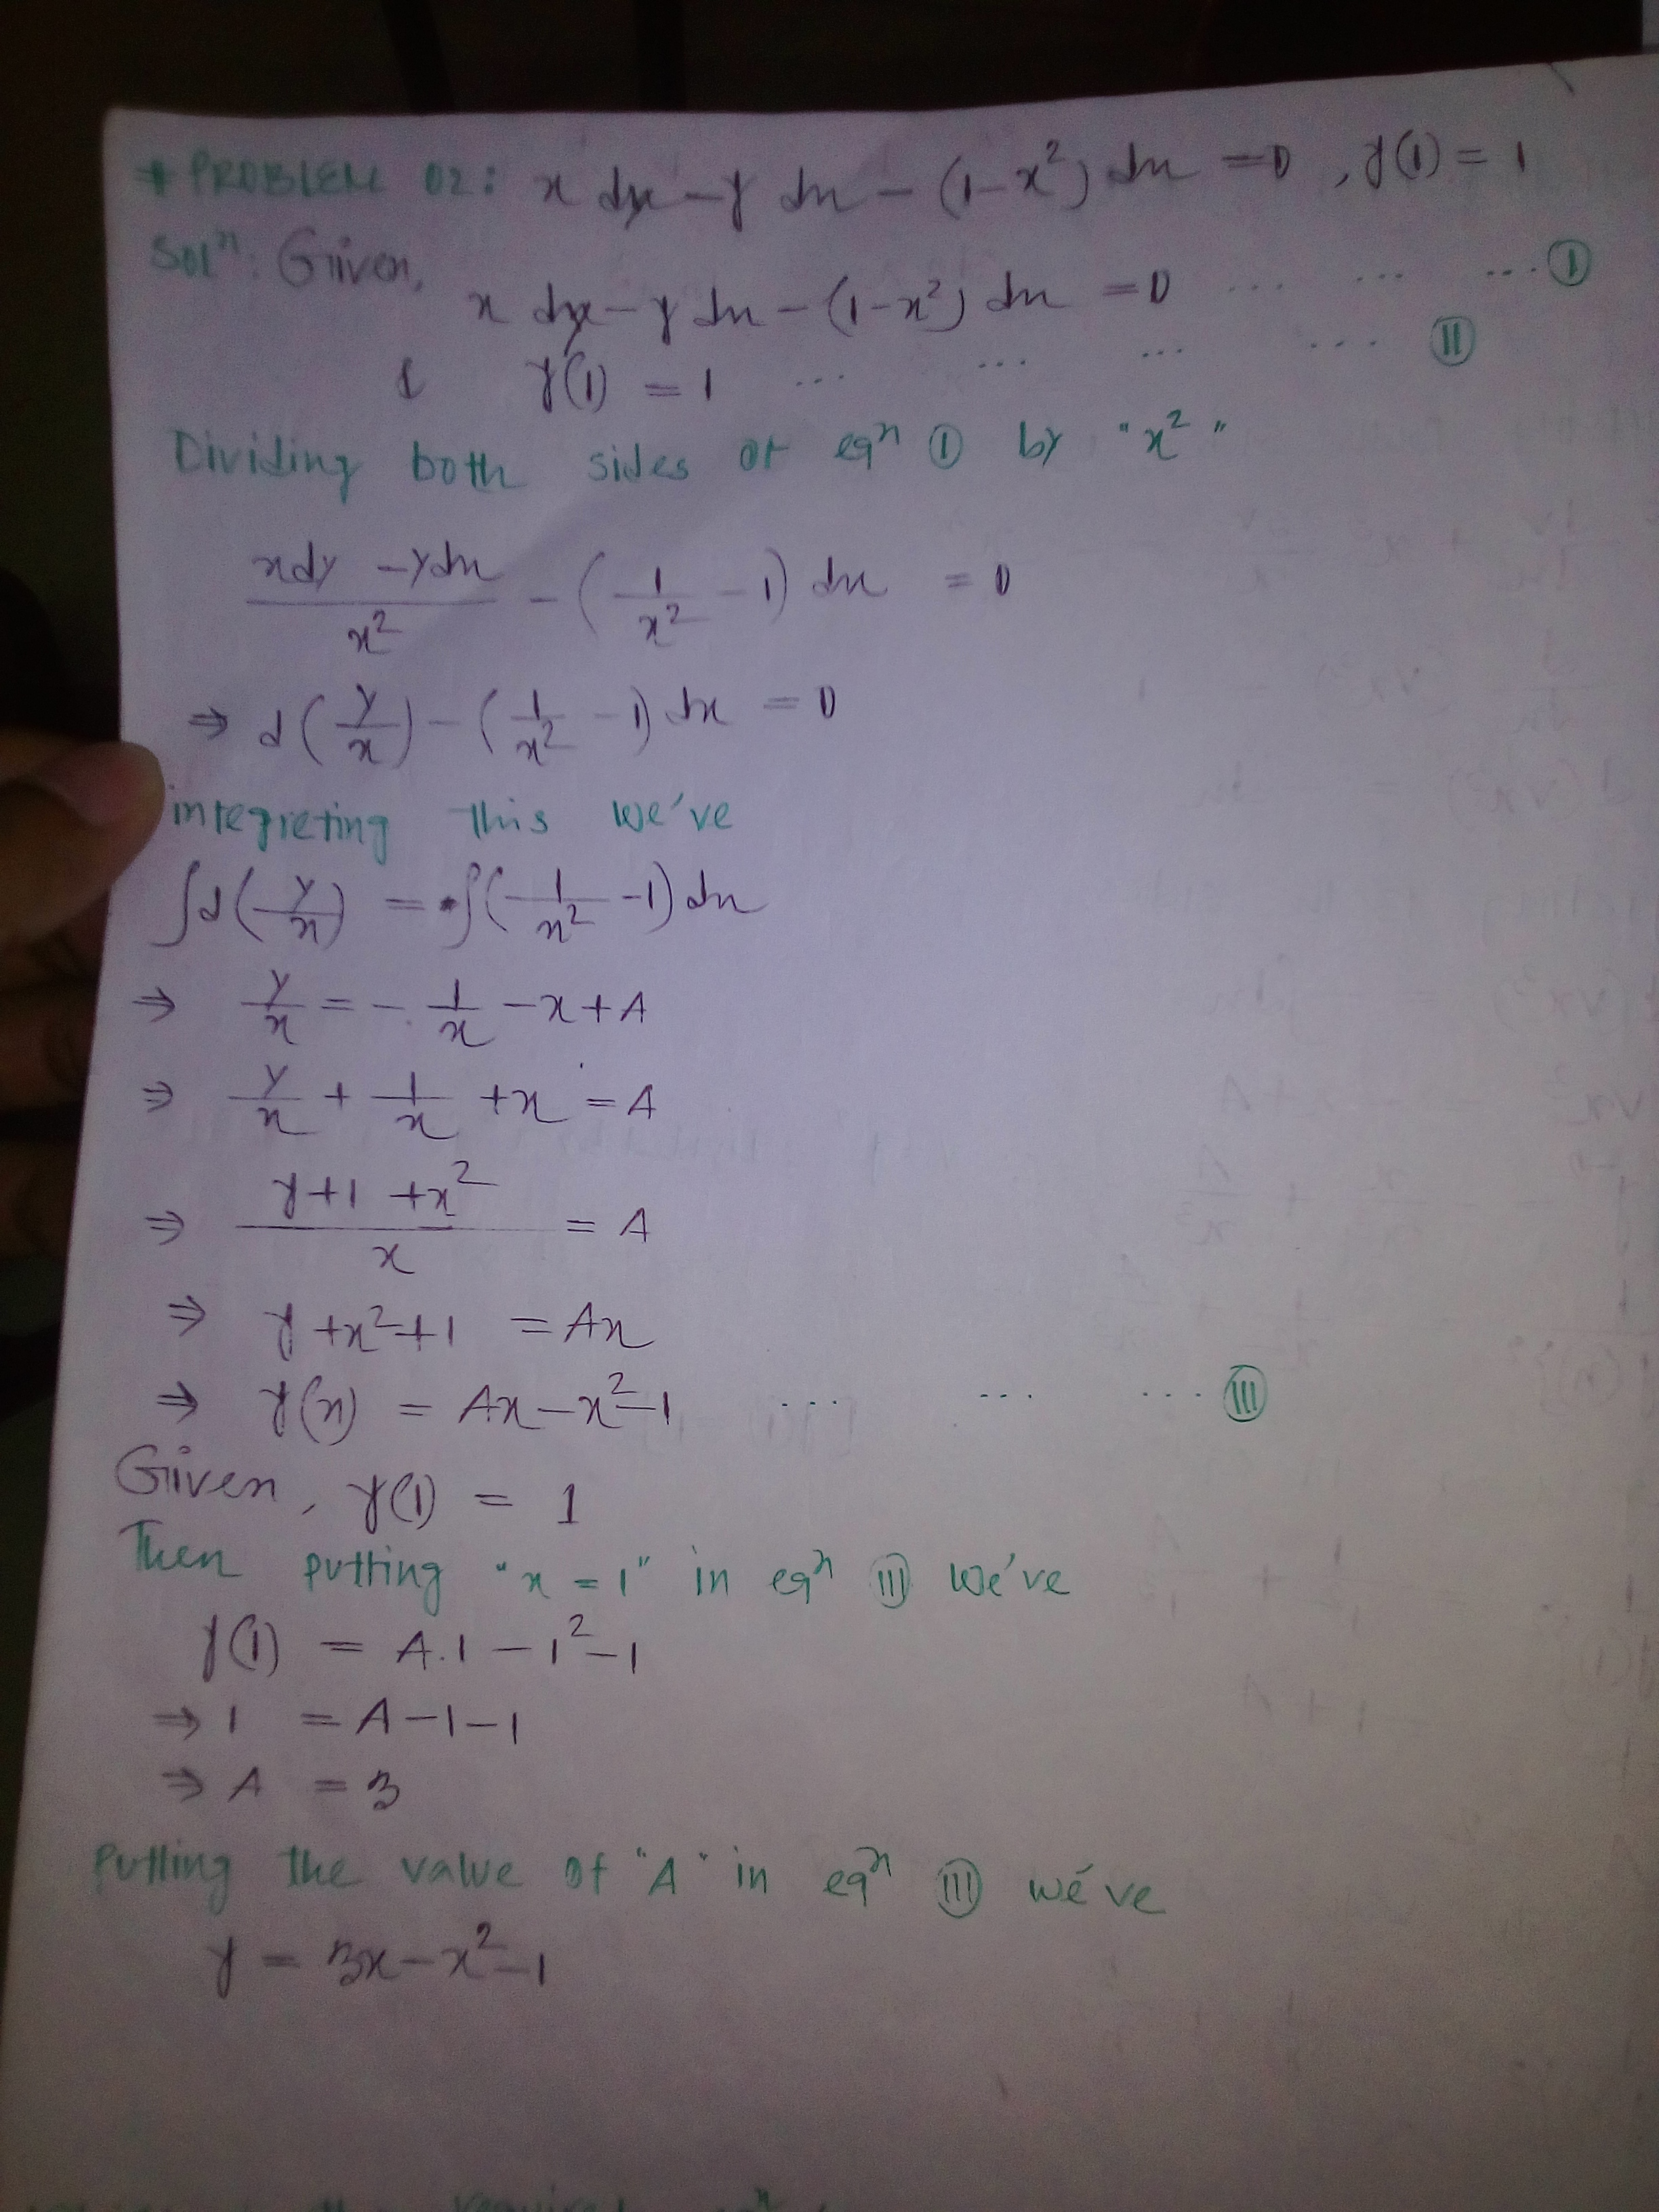 * PROBLEM 02: x dy - y dx - (1-x²) dx = 0 , y(1) = 1
Solⁿ: Given,
x dy - y dx - (1-x²) dx = 0 ... ... ... Ⓘ
& y(1) = 1 ... ... ... ... Ⓘ Ⓘ
Dividing both sides of eqⁿ Ⓘ by "x²"
(xdy - ydx)/x² - (1/x² - 1) dx = 0
⇒ d(y/x) - (1/x² - 1) dx = 0
integreting this we've
∫d(y/x) = ∫(1/x² - 1) dx
⇒ y/x = - 1/x - x + A
⇒ y/x + 1/x + x = A
⇒ (y + 1 + x²)/x = A
⇒ y + x² + 1 = Ax
⇒ y(x) = Ax - x² - 1 ... ... ... (III)
Given, y(1) = 1
Then putting "x = 1" in eqⁿ (III) we've
y(1) = A.1 - 1² - 1
⇒ 1 = A - 1 - 1
⇒ A = 3
Putting the value of "A" in eqⁿ (III) we've
y = 3x - x² - 1